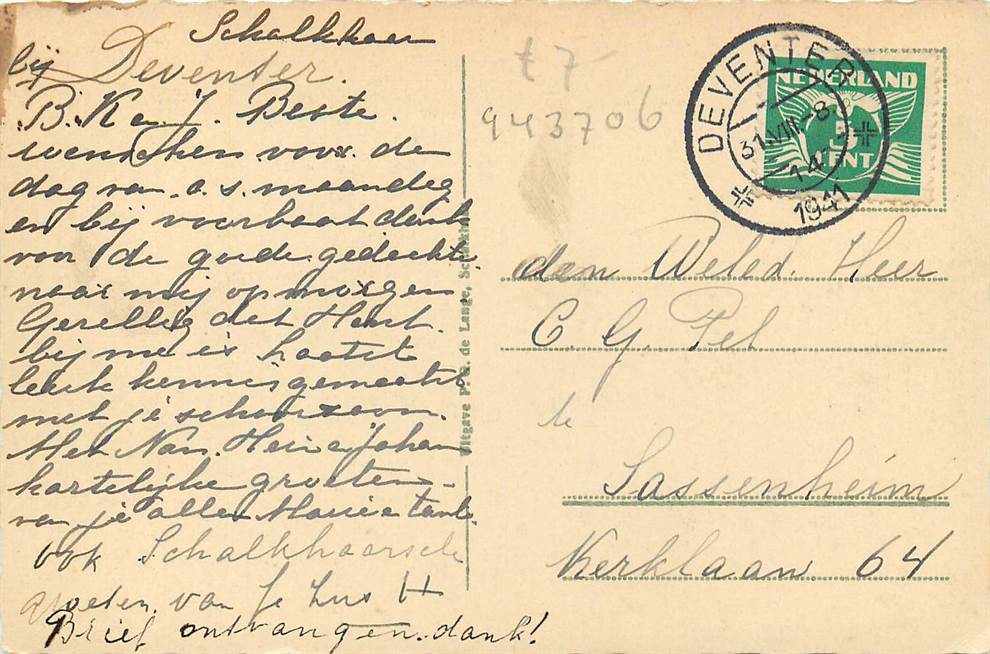 Schalkhaar
bij Deventer.
B. K en J. Beste
wenschen voor de
dag van a.s. maandag
en bij voorbaat dank
voor de goede gedachte
naar mij op morgen
Gezellig dat Hent.
bij me is haatst
leuk kennis gemaakt
met je schoonzoon.
Met Nan. Hein Johan
hartelijke groeten
van je aller Marie tante
ook Schalkhaarsche
groeten van Je Zus H
Brief ontvangen. dank!
Uitgave F. de Lange,
t 7-
943706
DEVENTER
31.VIII-8.
14
1941
NEDERLAND
CENT
den Weled. Heer
C. G. Pel
te
Sassenheim
Kerklaan 64